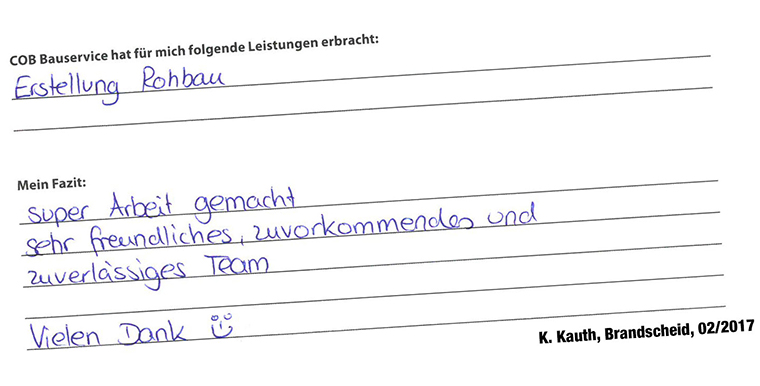 COB Bauservice hat für mich folgende Leistungen erbracht:
Erstellung Rohbau
Mein Fazit:
super Arbeit gemacht
sehr freundliches, zuvorkommendes und
zuverlässiges Team
Vielen Dank
K. Kauth, Brandscheid, 02/2017